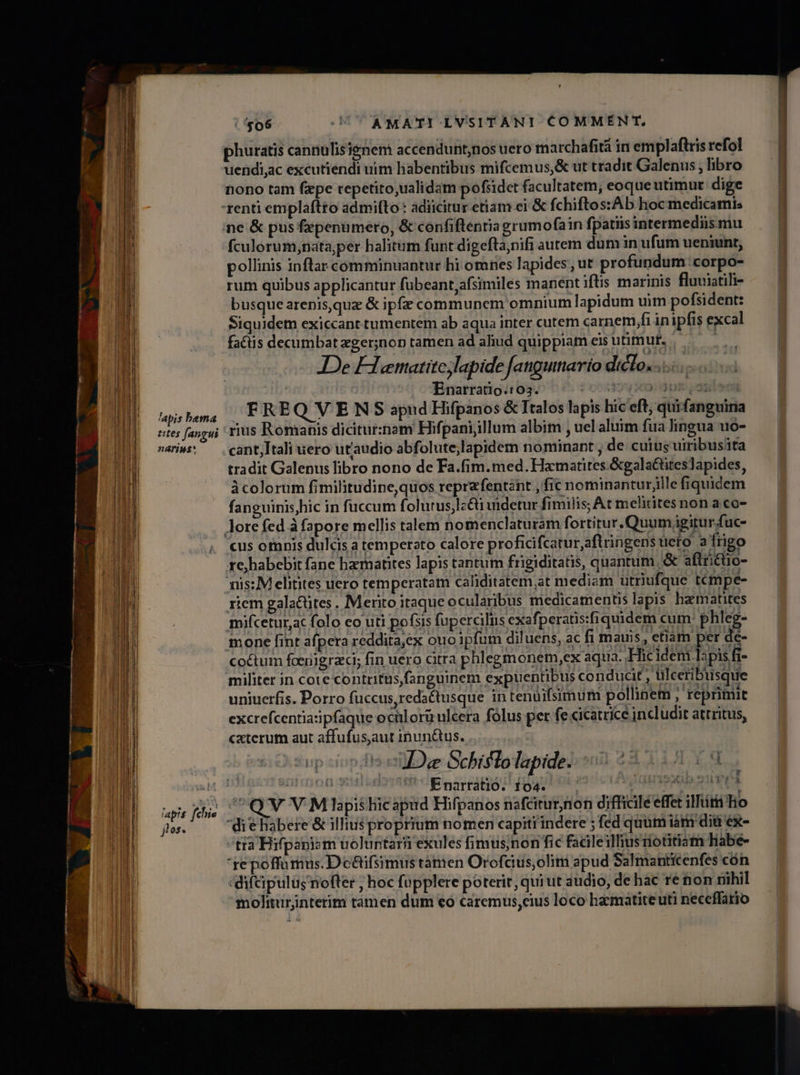 506 AMATI LVSITANI COMMENT.
phuratis cannulis ignem accendunt, nos uero marchasitã in emplastris resol
uendi, ac excutiendi uim habentibus miscemus, & ut tradit Galenus, libro
nono tam sæpe repetito, ualidam possidet facultatem, eoque utimur dige
renti emplastro admisto: adiicitur etiam ei & schistos: Ab hoc medicamis
ne & pus sæpenumero, & consistentia grumosa in spatiis intermediis mu
sculorum, nata, per halitum sunt digesta, nisi autem dum in usum ueniunt,
pollinis instar comminuantur hi omnes lapides, ut profundum corpo-
rum quibus applicantur subeant, assimiles manent istis marinis fluuiatili-
busque arenis, quæ & ipsæ communem omnium lapidum uim possident:
Siquidem exiccant tumentem ab aqua inter cutem carnem, si in ipsis excal
factis decumbat æger; non tamen ad aliud quippiam eis utimur.
De Hæmatite, lapide sanguinario dicto.
Enarratio. 103.
lapis hæma
tites sangui
narius.
FREQVENS apud Hispanos & Italos lapis hic est, qui sanguina
rius Romanis dicitur: nam Hispani, illum albim, uel aluim sua lingua uo-
cant, Itali uero ut audio absolute, lapidem nominant, de cuius uiribus ita
tradit Galenus libro nono de Fa. sim. med. Hæmatites & galactites lapides,
à colorum similitudine, quos repræsentant, sic nominantur, ille siquidem
sanguinis, hic in succum solutus, lacti uidetur similis; At melitites non a co-
lore sed à sapore mellis talem nomenclaturam sortitur. Quum igitur suc-
cus omnis dulcis a temperato calore proficiscatur, astringens uero a frigo
re, habebit sane hæmatites lapis tantum frigiditatis, quantum & astrictio-
nis: Melitites uero temperatam caliditatem at mediam utriusque tempe-
riem galactites. Merito itaque ocularibus medicamentis lapis hæmatites
miscetur, ac solo eo uti possis superciliis exasperatis: siquidem cum phleg-
mone sint aspera reddita, ex ouo ipsum diluens, ac si mauis, etiam per de-
coctum fœnigræci; sin uero citra phlegmonem, ex aqua. Hic idem lapis si-
militer in cote contritus, sanguinem expuentibus conducit, ulceribusque
uniuersis. Porro succus, redactusque in tenuissimum pollinem, reprimit
excrescentia: ipsaque oculorũ ulcera solus per se cicatrice includit attritus,
cæterum aut affusus, aut inunctus.
De Schisto lapide.
Enarratio. 104.
lapis schis
stos.
QVVM lapis hic apud Hispanos nascitur, non difficile esset illum ho
die habere & illius proprium nomen capiti indere; sed quum iam diu ex-
tra Hispaniam uoluntarii exules simus, non sic facile illius notitiam habe-
re possumus. Doctissimus tamen Oroscius, olim apud Salmanticenses con
discipulus noster, hoc supplere poterit, qui ut audio, de hac re non nihil
molitur, interim tamen dum eo caremus, eius loco hæmatite uti necessario